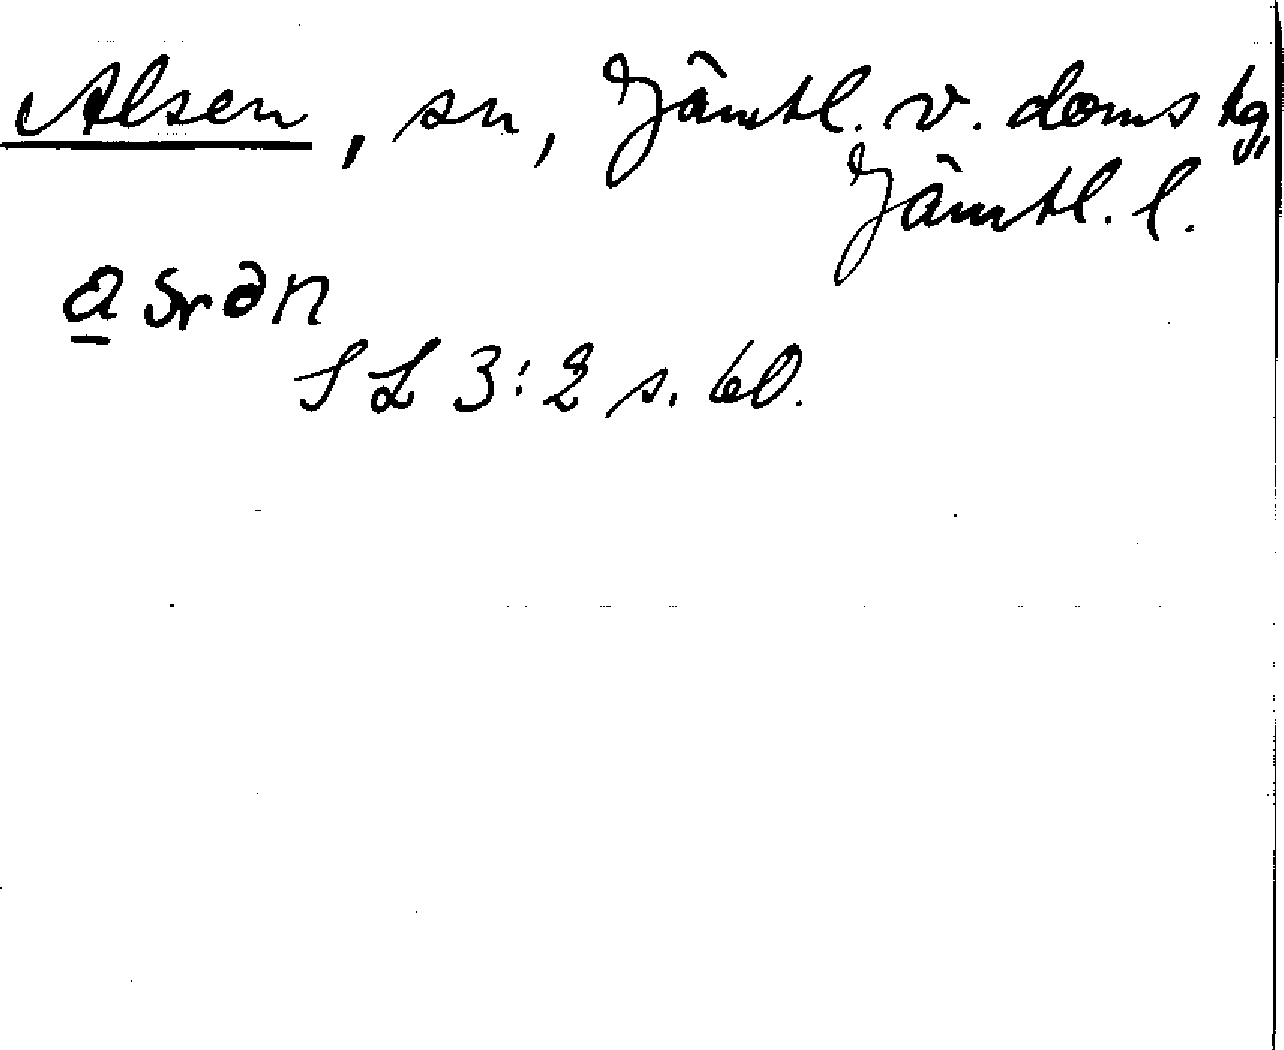 Alsen, sn, Jämtl. v. doms hg,
Jämtl. l.
SL 3:2 s. 60.